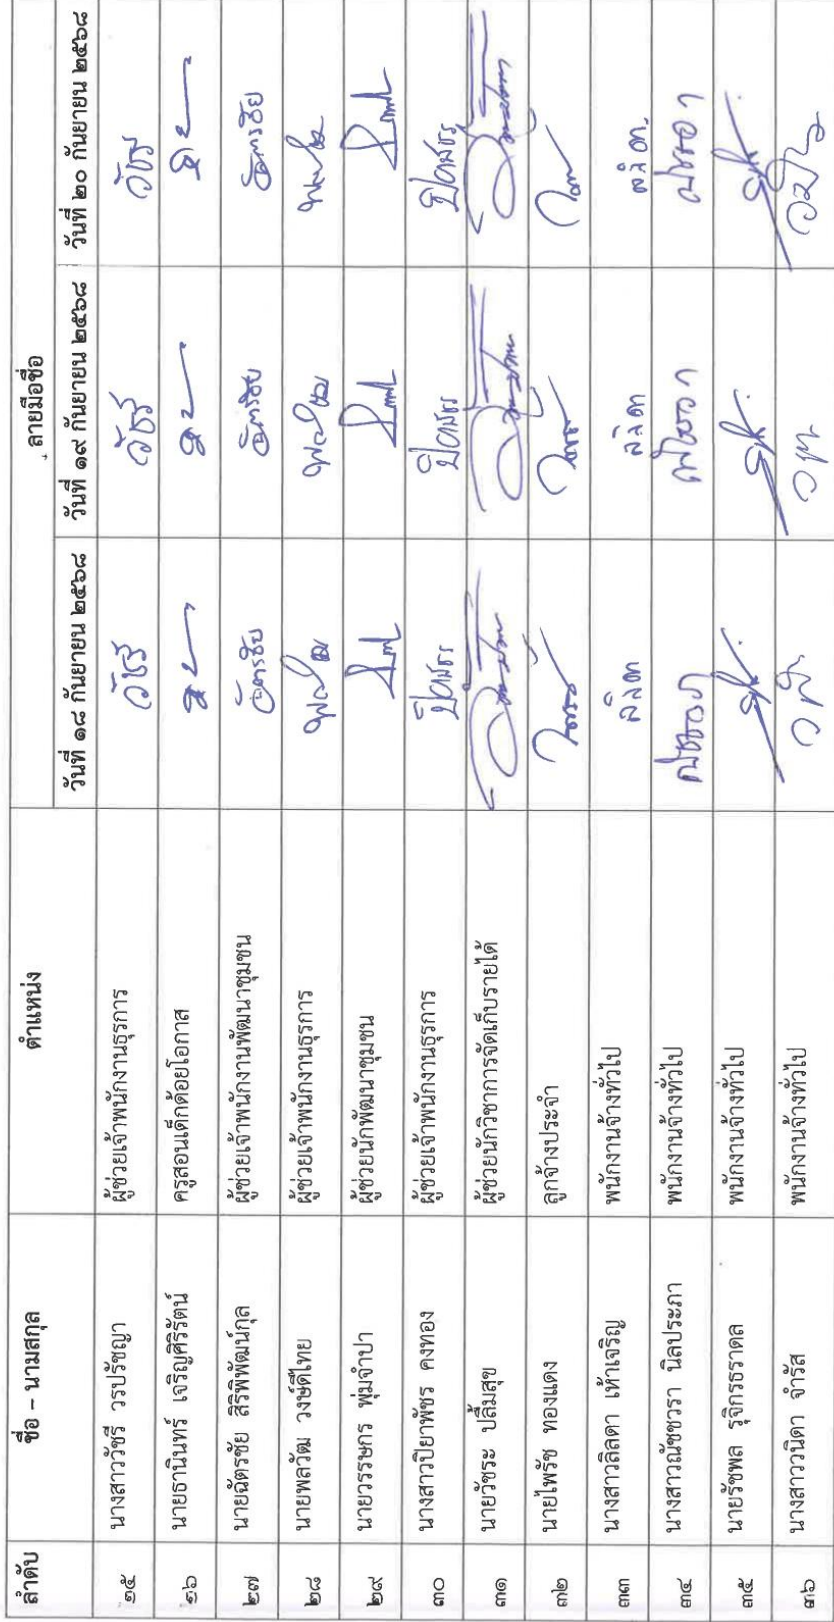 ลำดับ ชื่อ – นามสกุล ตำแหน่ง ลายมือชื่อ
วันที่ ๑๘ กันยายน ๒๕๖๘ วันที่ ๑๙ กันยายน ๒๕๖๘ วันที่ ๒๐ กันยายน ๒๕๖๘
๒๕ นางสาววัชรี วรปรัชญา ผู้ช่วยเจ้าพนักงานธุรการ วัชรี วัชรี วัชรี
๒๖ นายธานินทร์ เจริญศิริรัตน์ ครูสอนเด็กด้อยโอกาส
๒๗ นายฉัตรชัย สิริพิพัฒน์กุล ผู้ช่วยเจ้าพนักงานพัฒนาชุมชน ฉัตรชัย ฉัตรชัย ฉัตรชัย
๒๘ นายพลวัฒ วงษ์ดีไทย ผู้ช่วยเจ้าพนักงานธุรการ
๒๙ นายวรรษกร พุ่มจำปา ผู้ช่วยนักพัฒนาชุมชน
๓๐ นางสาวปิยาพัชร คงทอง ผู้ช่วยเจ้าพนักงานธุรการ
๓๑ นายวัชระ ปลื้มสุข ผู้ช่วยนักวิชาการจัดเก็บรายได้
๓๒ นายไพรัช ทองแดง ลูกจ้างประจำ
๓๓ นางสาวลิลดา เห้าเจริญ พนักงานจ้างทั่วไป
๓๔ นางสาวณัชชวรา นิลประภา พนักงานจ้างทั่วไป
๓๕ นายรัชพล รุจิกรธราดล พนักงานจ้างทั่วไป
๓๖ นางสาววนิดา จำรัส พนักงานจ้างทั่วไป